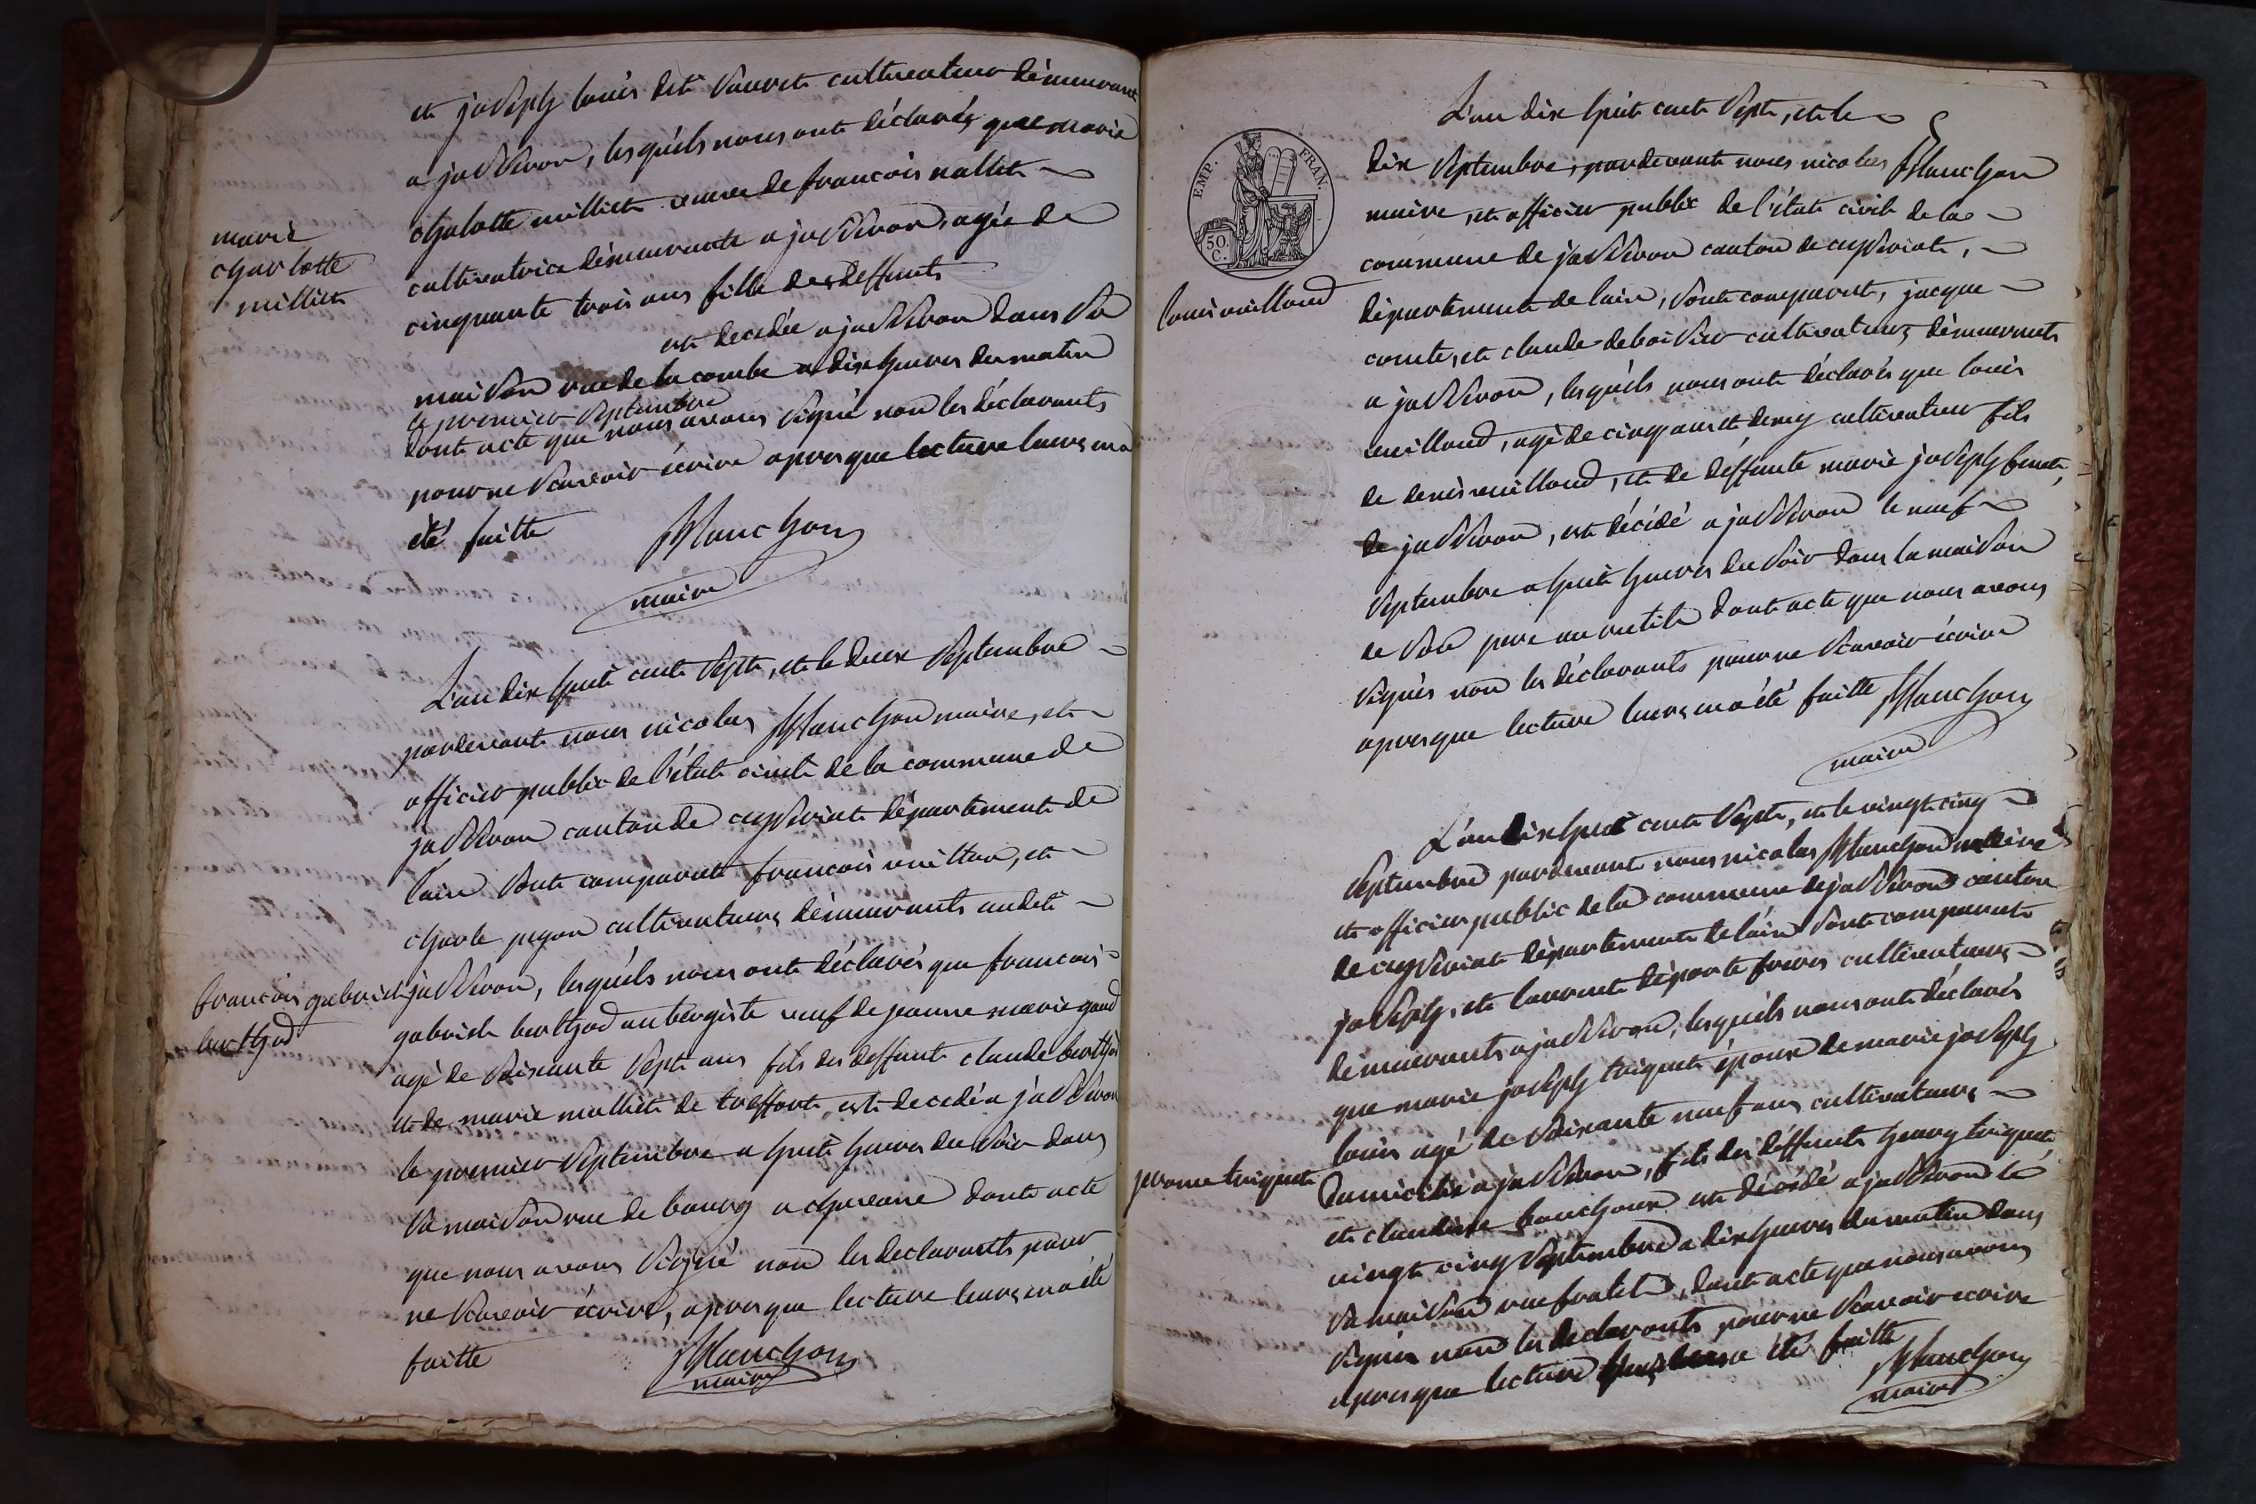 et joseph louis dit Vauret cultivateur démeurant
a jasseron, lesquéls nous ont déclarés que marie
chalotte milliet veuve de francois nallet
cultivatrice démeurante a jasseron, agée de
cinquante trois ans fille des deffunts
est decedée a jasseron dans sa
maison rue de la combe a dix heures du matin
le premier septembre
dont acte que nous avons signé non les déclarants
pour ne scavoir écrire apres que lecture leurs en a
été faitte
Manchon
maire
marie
charlotte
milliet
L'an dix huit cent sept, et le deux septembre
pardevant nous nicolas Manchon maire, et
officier public de l'état civil de la commune de
jasseron canton de ceyseriat département de
l'ain sont comparut francois, et
charle pegon cultivateurs démeurants audit
jasseron, lesquéls nous ont déclarés que francois
gabriel berthod aubergiste veuf de jeanne marie gaud
agé de soixante sept ans fils des deffunt claude berthod
et de marie molliet de treffort, est decedé a jasseron
le premier septembre a huit heures du soir dans
sa maison rue de bourg a chareane dont acte
que nous avons signé non les declarants pour
ne scavoir écrire, apres que lecture leurs en a été
faitte
Manchon
maire
francois gabriel
berthod
EMP. FRAN.
50.
C.
L'an dix huit cent sept, et le
dix septembre, pardevant nous nicolas Manchon
maire, et officier public de l'état civil de la
commune de jasseron canton de ceyseriat,
département de lain, sont comparut, jacque
comte, et claude deboisieu cultivateurs démeurants
a jasseron, lesquéls nous ont déclarés que louis
vuilloud, agé de cinq ans et demy cultivateur fils
de denis vuilloud, et de déffunte marie joseph benoit,
de jasseron, est décédé a jasseron le neuf
septembre a huit heures du soir dans la maison
de son pere dont acte que nous avons
signés non les déclarants pour ne scavoir écrire
apres que lecture leurs en a été faitte Manchon
maire
louis vuilloud
L'an dix huit cent sept, et le vingt cinq
septembre pardevant nous nicolas Manchon maire
et officier public de la commune de jasseron canton
de ceyseriat département de lain sont comparut
joseph, et laurent déporte freres cultivateurs
démeurants a jasseron, lesquéls nous ont déclarés
que marie joseph triquet époux de marie joseph
louis agé de soixante neuf ans cultivateurs
domicilié a jasseron, fils des déffunts henry triquet
et claudine bouchoux est décédé a jasseron le
vingt cinq septembre a dix heures du matin dans
sa maison rue, dont acte que nous avons
signés non les declarants pour ne scavoir ecrire
apres que lecture a été faitte
Manchon
maire
jerome triquet